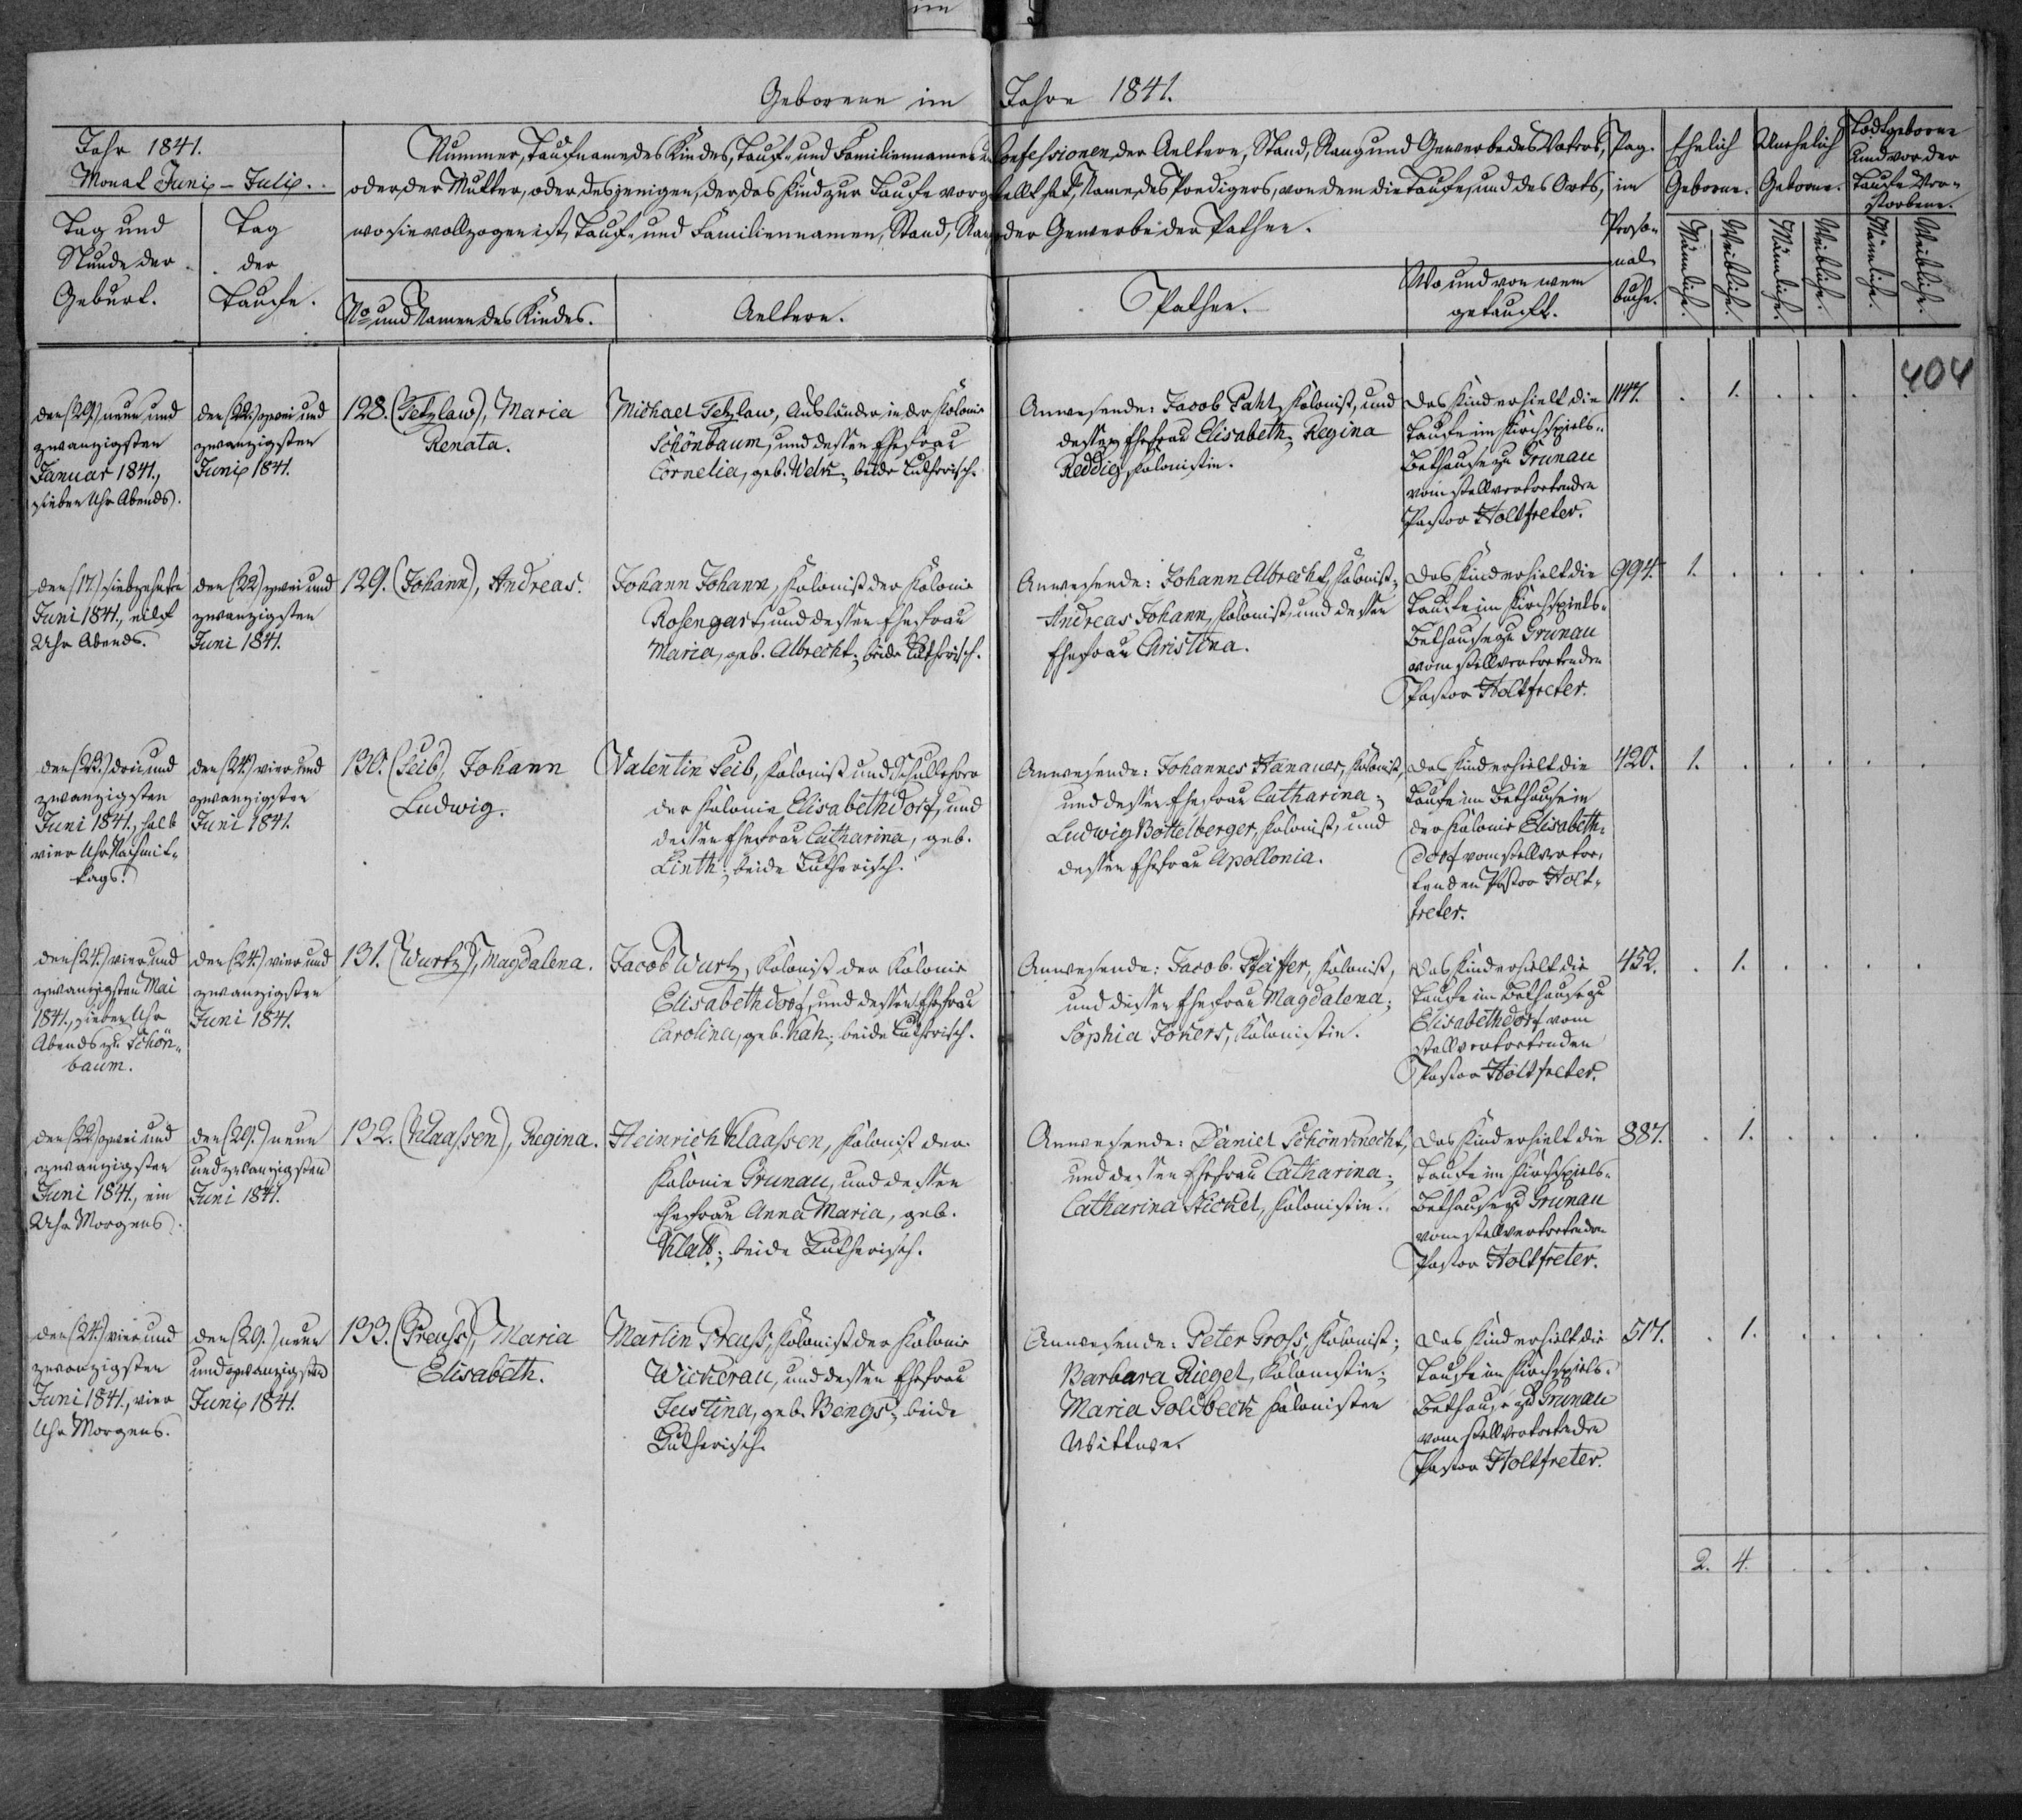 Geborene im Jahre 1841.
Jahr 1841.
Monat Juni - Juli.
Tag und
Stunde der
Geburt.
Tag
der
Taufe.
Nummer, Taufname des Kindes, Tauf- und Familiennamen u. Confessionen der Aeltern, Stand, Rang und Gewerbe des Vaters,
oder der Mutter, oder desjenigen, der das Kind zur Taufe vorgestellt hat, Name des Predigers, von dem die Taufe, und des Orts,
wo sie vollzogen ist, Tauf- und Familiennamen, Stand, Rang oder Gewerbe der Pathen.
No und Namen des Kindes.
Aeltern.
Pathen.
Wo und von wem
getauft.
Pag.
im
Perso-
nal-
buche.
Ehelich
Geborne.
Unehelich
Geborne.
Todtgeborne
und vor der
Taufe Ver-
storbene.
Männliche.
Weibliche.
Männliche.
Weibliche.
Männliche.
Weibliche.
404
den (29.) neun und
zwanzigsten
Januar 1841.,
sieben Uhr Abends.
den (22.) zwei und
zwanzigsten
Juni 1841.
128. (Tetzlaw), Maria
Renata.
Michael Tetzlaw, Ausländer in der Kolonie
Schönbaum, und dessen Ehefrau
Cornelia, geb. Welk; beide Lutherisch.
Anwesende: Jacob Paht, Kolonist, und
dessen Ehefrau Elisabeth; Regina
Reddig, Kolonistin.
Das Kind erhielt die
Taufe im Kirchspiels-
Bethause zu Grunau
vom stellvertretenden
Pastor Holtfreter.
1147. . 1. . . . .
den (17.) siebzehnten
Juni 1841., eilf
Uhr Abends.
den (22.) zwei und
zwanzigsten
Juni 1841.
129. (Johann), Andreas.
Johann Johann, Kolonist der Kolonie
Rosengart, und dessen Ehefrau
Maria, geb. Albrecht; beide Lutherisch.
Anwesende: Johann Albrecht, Kolonist;
Andreas Johann, Kolonist, und dessen
Ehefrau Christina.
Das Kind erhielt die
Taufe im Kirchspiels-
Bethause zu Grunau
vom stellvertretenden
Pastor Holtfreter.
994. 1. . . . . .
den (23.) drei und
zwanzigsten
Juni 1841., halb
vier Uhr Nachmit-
tags.
den (24.) vier und
zwanzigsten
Juni 1841.
130. (Seib), Johann
Ludwig.
Valentin Seib, Kolonist und Schullehrer
der Kolonie Elisabethdorf, und
dessen Ehefrau Catharina, geb.
Linth; beide Lutherisch.
Anwesende: Johannes Hanauer, Kolonist,
und dessen Ehefrau Catharina;
Ludwig Bottelberger, Kolonist, und
dessen Ehefrau Apollonia.
Das Kind erhielt die
Taufe im Bethause in
der Kolonie Elisabeth-
dorf vom stellvertre-
tenden Pastor Holt-
freter.
420. 1. . . . . .
den (24.) vier und
zwanzigsten Mai
1841., sieben Uhr
Abends zu Schön-
baum.
den (24.) vier und
zwanzigsten
Juni 1841.
131. (Wurtz), Magdalena.
Jacob Wurtz, Kolonist der Kolonie
Elisabethdorf, und dessen Ehefrau
Carolina, geb. Kah; beide Lutherisch.
Anwesende: Jacob Pfeiffer, Kolonist,
und dessen Ehefrau Magdalena;
Sophia Jokers, Kolonistin.
Das Kind erhielt die
Taufe im Bethause zu
Elisabethdorf vom
stellvertretenden
Pastor Holtfreter.
452. . 1. . . . .
den (22.) zwei und
zwanzigsten
Juni 1841., ein
Uhr Morgens.
den (29.) neun
und zwanzigsten
Juni 1841.
132. (Klaassen), Regina.
Heinrich Klaassen, Kolonist der
Kolonie Grunau, und dessen
Ehefrau Anna Maria, geb.
Klatt; beide Lutherisch.
Anwesende: Daniel Schönknecht,
und dessen Ehefrau Catharina;
Catharina Stickel, Kolonistin.
Das Kind erhielt die
Taufe im Kirchspiels-
Bethause zu Grunau
vom stellvertretenden
Pastor Holtfreter.
887. . 1. . . . .
den (24.) vier und
zwanzigsten
Juni 1841., vier
Uhr Morgens.
den (29.) neun
und zwanzigsten
Juni 1841.
133. (Preuss), Maria
Elisabeth.
Martin Preuss, Kolonist der Kolonie
Wickerau, und dessen Ehefrau
Justina, geb. Bengs; beide
Lutherisch.
Anwesende: Peter Gross, Kolonist;
Barbara Riegel, Kolonistin;
Maria Goldbeck Kolonisten
Wittwe.
Das Kind erhielt die
Taufe im Kirchspiels-
Bethause zu Grunau
vom stellvertretenden
Pastor Holtfreter.
517. . 1. . . . .
2. 4. . . . .